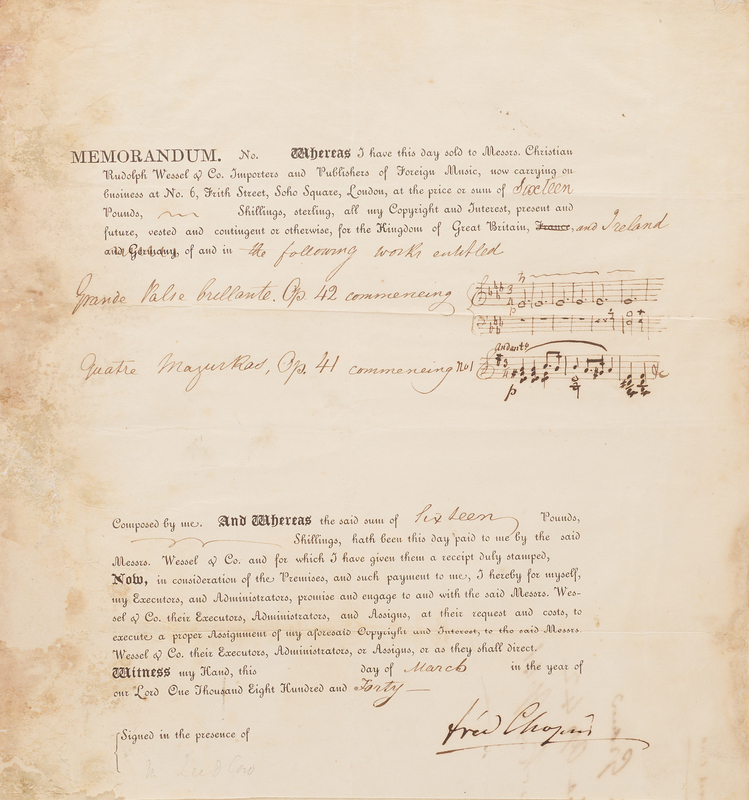 MEMORANDUM. No. Whereas I have this day sold to Messrs. Christian
Rudolph Wessel & Co. Importers and Publishers of Foreign Music, now carrying on
business at No. 6, Frith Street, Soho Square, London, at the price or sum of Sixteen
Pounds, Shillings, sterling, all my Copyright and Interest, present and
future, vested and contingent or otherwise, for the Kingdom of Great Britain, France, and Ireland
and Germany, of and in the following works entitled
Grande Valse brillante. Op. 42 commencing
Quatre Mazurkas, Op. 41 commencing No 1
Andante
p
p
Composed by me. And Whereas the said sum of Sixteen Pounds,
Shillings, hath been this day paid to me by the said
Messrs. Wessel & Co. and for which I have given them a receipt duly stamped,
Now, in consideration of the Premises, and such payment to me, I hereby for myself,
my Executors, and Administrators, promise and engage to and with the said Messrs. Wes-
sel & Co. their Executors, Administrators, and Assigns, at their request and costs, to
execute a proper Assignment of my aforesaid Copyright and Interest, to the said Messrs.
Wessel & Co. their Executors, Administrators, or Assigns, or as they shall direct.
Witness my Hand, this day of March in the year of
our Lord One Thousand Eight Hundred and Forty
Signed in the presence of
fréd Chopin